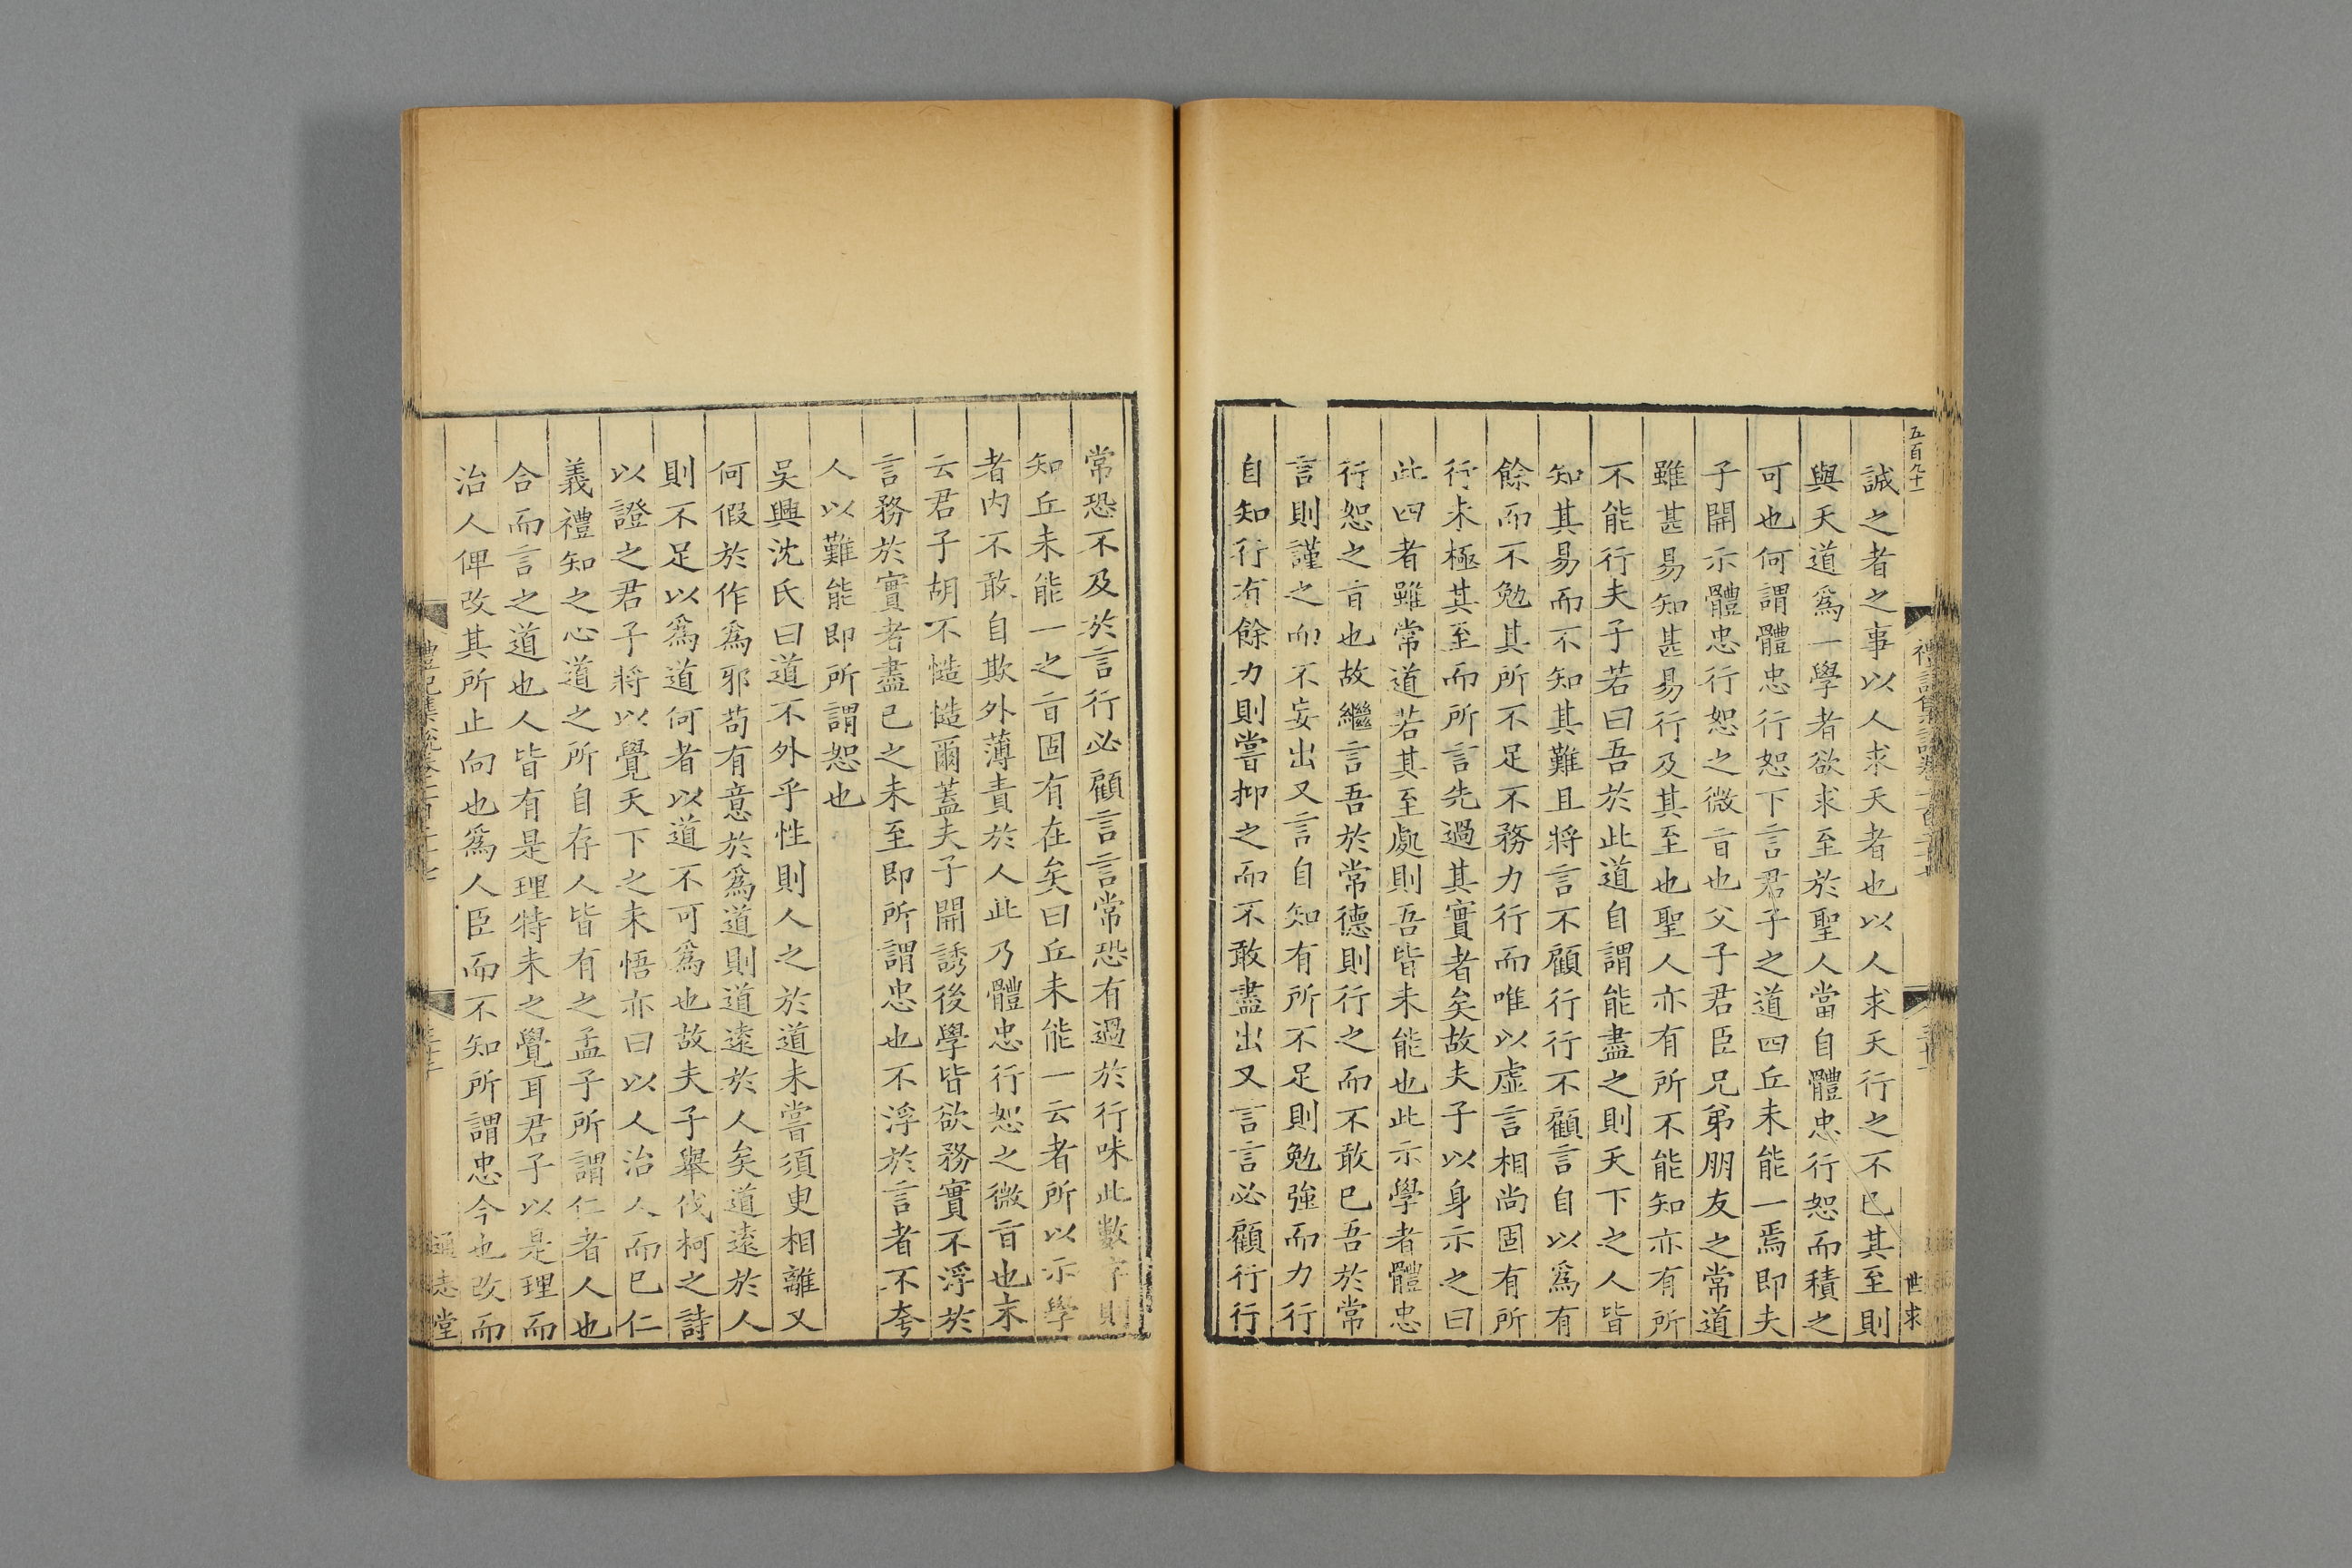 五百九十一
誠之者之事以人求天者也以人求天行之不已其至則
與天道爲一學者欲求至於聖人當自體忠行恕而積之
可也何謂體忠行恕下言君子之道四丘未能一焉即夫
子開示體忠行恕之微㫖也父子君臣兄弟朋友之常道
雖甚易知甚易行及其至也聖人亦有所不能知亦有所
不能行夫子若曰吾於此道自謂能盡之則天下之人皆
知其易而不知其難且將言不顧行行不顧言自以爲有
餘而不勉其所不足不務力行而唯以虛言相尚固有所
行未極其至而所言先過其實者矣故夫子以身示之曰
此四者雖常道若其至處則吾皆未能也此示學者體忠
行恕之㫖也故繼言吾於常德則行之而不敢已吾於常
言則謹之而不妄出又言自知有所不足則勉強而力行
自知行有餘力則嘗抑之而不敢盡出又言言必顧行行
世求
常恐不及於言行必顧言言常恐有過於行味此數字則
知丘未能一之㫖固有在矣曰丘未能一云者所以示學
者内不敢自欺外薄責於人此乃體忠行恕之微㫖也末
云君子胡不慥慥爾蓋夫子開誘後學皆欲務實不浮於
言務於實者盡已之未至即所謂忠也不浮於言者不夸
人以難能即所謂恕也
吳興沈氏曰道不外乎性則人之於道未嘗須臾相離又
何假於作爲邪苟有意於爲道則道遠於人矣道遠於人
則不足以爲道何者以道不可爲也故夫子舉伐柯之詩
以證之君子將以覺天下之未悟亦曰以人治人而已仁
義禮知之心道之所自存人皆有之孟子所謂仁者人也
合而言之道也人皆有是理特未之覺耳君子以是理而
治人俾改其所止向也爲人臣而不知所謂忠今也改而
禮記集說卷一百二十七
通志堂